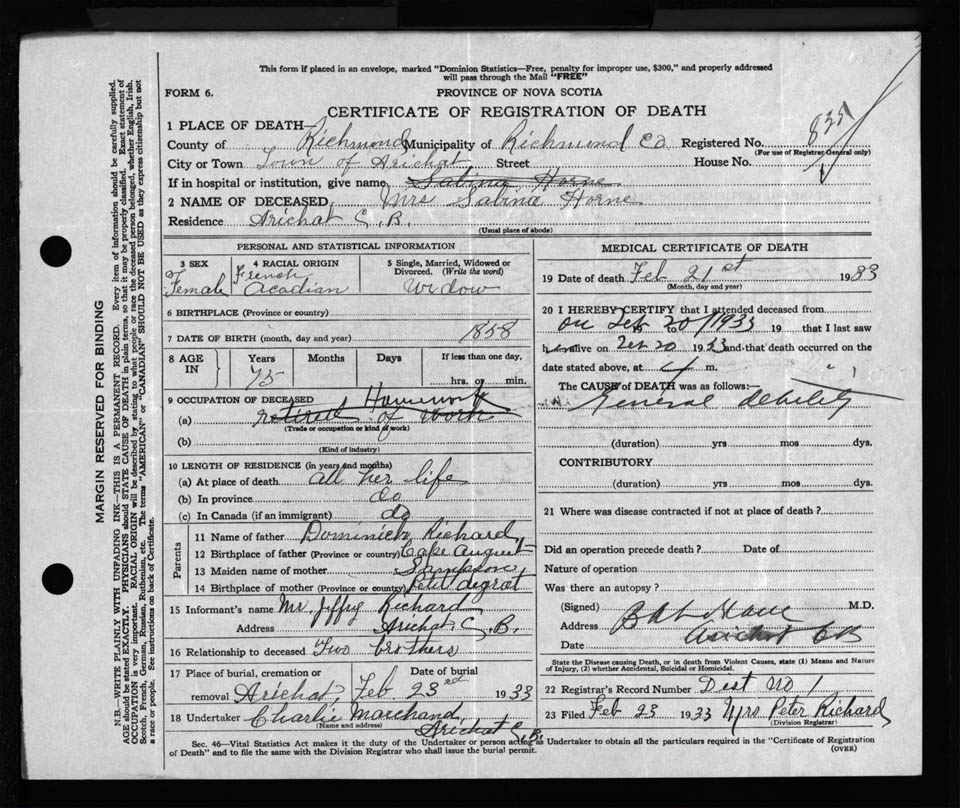 This form if placed in an envelope, marked "Dominion Statistics—Free, penalty for improper use, $300," and properly addressed
will pass through the Mail "FREE"
FORM 6.
PROVINCE OF NOVA SCOTIA
CERTIFICATE OF REGISTRATION OF DEATH
1 PLACE OF DEATH—
County of Richmond Municipality of Richmond Co Registered No.
(For use of Registrar General only)
City or Town Town of Arichat Street House No.
If in hospital or institution, give name Sabina Horne
2 NAME OF DECEASED Mrs Sabina Horne
Residence Arichat C.B.
(Usual place of abode)
PERSONAL AND STATISTICAL INFORMATION
3 SEX
Female
4 RACIAL ORIGIN
French
Acadian
5 Single, Married, Widowed or
Divorced. (Write the word)
Widow
6 BIRTHPLACE (Province or country)
7 DATE OF BIRTH (month, day and year) 1858
8 AGE
IN
Years Months Days
75
If less than one day,
hrs. or min.
9 OCCUPATION OF DECEASED
(a) retired of work Housework
(Trade or occupation or kind of work)
(b)
(Kind of industry)
10 LENGTH OF RESIDENCE (in years and months)
(a) At place of death all her life
(b) In province do
(c) In Canada (if an immigrant) do
Parents
11 Name of father Dominick Richard
12 Birthplace of father (Province or country) Cape August
13 Maiden name of mother Sampson
14 Birthplace of mother (Province or country) Petit degrat
15 Informant's name Mr Jeffry Richard
Address Arichat C.B.
16 Relationship to deceased Two brothers
17 Place of burial, cremation or Date of burial
removal Arichat, Feb 23rd 1933
18 Undertaker Charlie Marchand
(Name and address)
Arichat C.B.
MEDICAL CERTIFICATE OF DEATH
19 Date of death Feb 21st 1933
(Month, day and year)
20 I HEREBY CERTIFY that I attended deceased from
on Feb 20/1933 19 to 19 that I last saw
h alive on Feb 20 1933 and that death occurred on the
date stated above, at 4 m.
The CAUSE of DEATH was as follows:—
General debility
(duration) yrs mos dys.
CONTRIBUTORY
(duration) yrs mos dys.
21 Where was disease contracted if not at place of death?
Did an operation precede death? Date of
Nature of operation
Was there an autopsy?
(Signed) M.D.
Address Arichat CB
Date
State the Disease causing Death, or in death from Violent Causes, state (1) Means and Nature
of Injury, (2) whether Accidental, Suicidal or Homicidal.
22 Registrar's Record Number Dist No 1
23 Filed Feb 23 1933 Mrs Peter Richard
(Division Registrar)
Sec. 46—Vital Statistics Act makes it the duty of the Undertaker or person acting as Undertaker to obtain all the particulars required in the "Certificate of Registration
of Death" and to file the same with the Division Registrar who shall issue the burial permit.
(OVER)
MARGIN RESERVED FOR BINDING
N.B.—WRITE PLAINLY WITH UNFADING INK—THIS IS A PERMANENT RECORD. Every item of information should be carefully supplied.
AGE should be stated EXACTLY. PHYSICIANS should STATE CAUSE OF DEATH in plain terms, so that it may be properly classified. Exact statement of
OCCUPATION is very important. RACIAL ORIGIN will be described by stating to what people or race the deceased person belonged, whether English, Irish,
Scotch, French, German, Russian, Ruthenian, etc. The terms "AMERICAN" or "CANADIAN" SHOULD NOT BE USED as they express citizenship but not
a race or people. See instructions on back of Certificate.